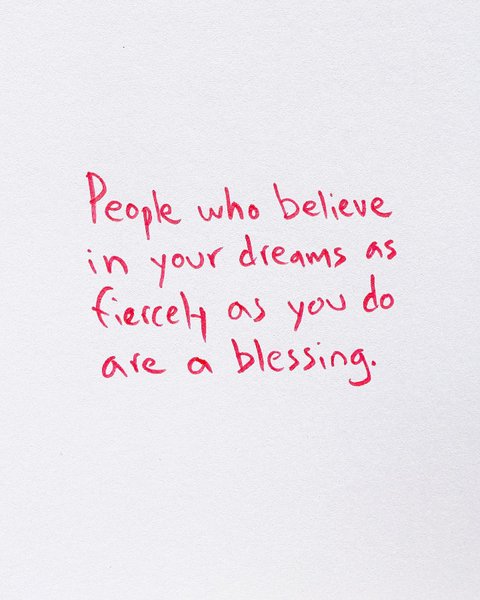 People who believe
in your dreams as
fiercely as you do
are a blessing.